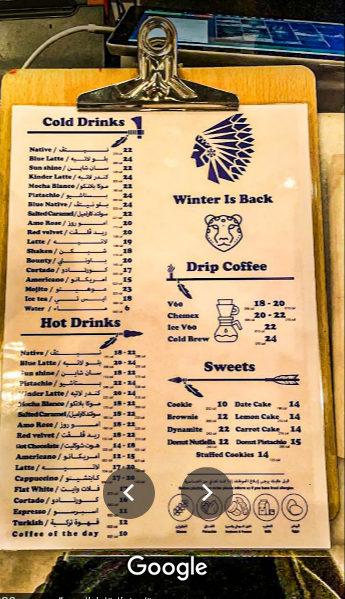 Cold Drinks
Native / نيتف 22
Blue Latte / بلو لاتيه 24
Sun shine / سان شاين 22
Kinder Latte / كندر لاتيه 22
Mocha Blanco / موكا بلانكو 22
Pistachio / بستاشيو 24
Blue Native / بلو نيتف 24
Salted Caramel / 22
Amo Rose / امو روز 22
Red velvet / ريد فلفت 20
Latte / لاتيه 19
Shaken / شيكن 18
Bounty / باونتي 20
Cortado / كورتادو 17
Americano / امريكانو 15
Mojito / موهيتو 20
Ice tea / ايس تي 18
Water / ماء 6
Hot Drinks
Native / نيتف 18 - 22
Blue Latte / بلو لاتيه 20 - 24
Sun shine / سان شاين 18 - 22
Pistachio / بستاشيو 22 - 24
Kinder Latte / كندر لاتيه 20 - 24
Mocha Blanco / موكا بلانكو 18 - 22
Salted Caramel / 18 - 22
Amo Rose / امو روز 18 - 22
Red velvet / ريد فلفت 18 - 22
Hot Chocolate / هوت شوكليت 14 - 18
Americano / امريكانو 12 - 15
Latte / لاتيه 17 - 20
Cappuccino / كابتشينو 17 - 20
Flat White / فلات وايت 17
Cortado / كورتادو
Espresso / اسبريسو
Turkish / قهوة تركية 12
Coffee of the day 10
Winter Is Back
Drip Coffee
V60 18 - 20
Chemex 20 - 22
Ice V60 22
Cold Brew 24
Sweets
Cookie 10 Date Cake 14
Brownie 12 Lemon Cake 14
Dynamite 22 Carrot Cake 14
Donut Nutlella 12 Donut Pistachio 15
Stuffed Cookies 14
Google